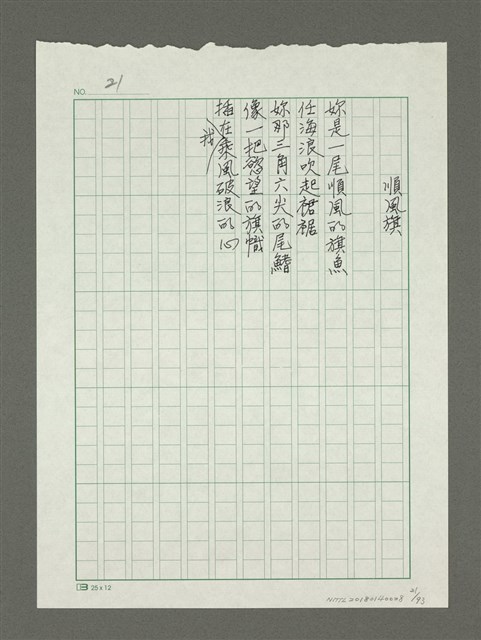 NO. 21
順風旗
妳是一尾順風的旗魚
任海浪吹起裙裾
妳那三角六尖的尾鰭
像一把慾望的旗幟
插在我乘風破浪的心
25 x 12
NMTL20180140008 21/93